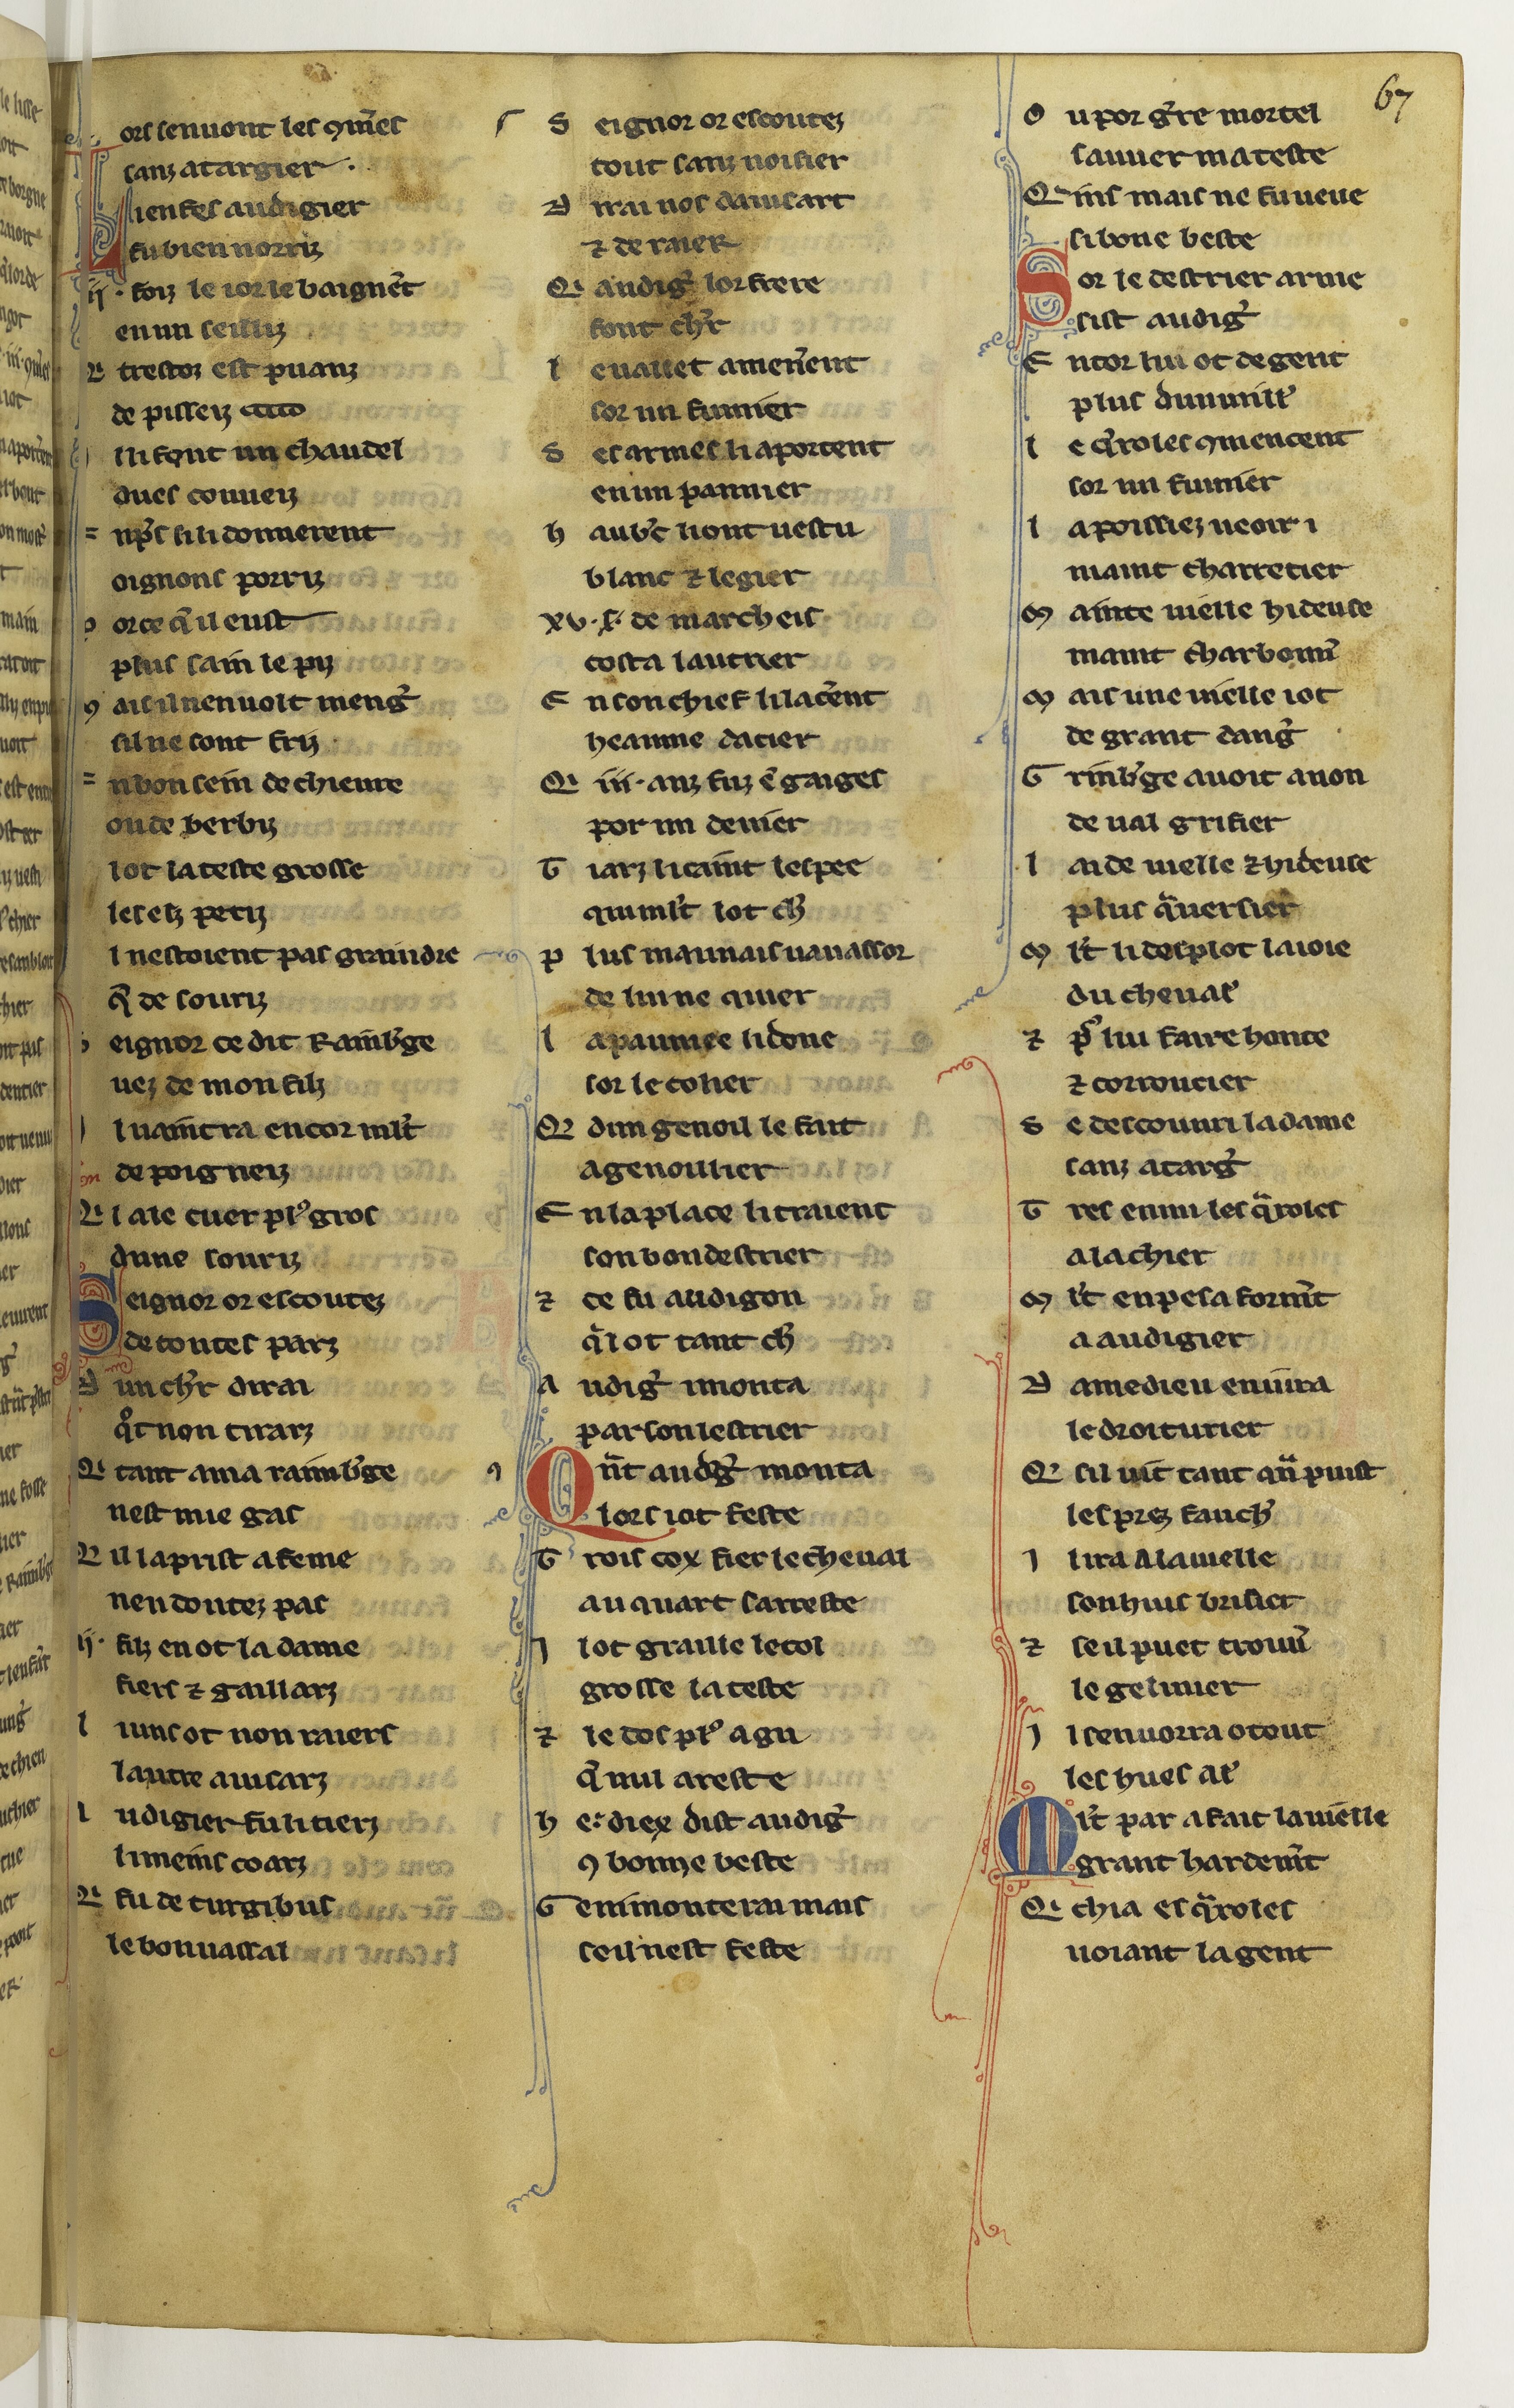 67
ors senuont les ꝯm̃es
sanz atargier ·
Lienfes audigier
fu bien norriz
ij · foiz le ior le baignẽt
en un seilliz
Q trestoz est puanz
de pisseiz
I lli font un chaudel
dues couueiz
E npͤs si li donnerent
oignons porriz
P or ce q̃ il eust
plus sain le piz
M ais il nen uolt mengͥ
sil ne sont friz
E n bon sein de chieure
ou de berbiz
I ot la teste grosse
les elz petiz
I nestoient pas graindre
q̃ de souriz
S eignor ce dit Raimbͥge
uez de mon filz
I l uaintra encor ml̃t
de poigneiz
Q l a le cuer plꝰ gros
dune souriz
Seignor or escoutez
de toutes parz
D un chr̃ dirai
q̃t non tirarz
Q tant ama raimbͥge
nest mie gas
Q il la prist a feme
nen doutez pas
ij · filz en ot la dame
fiers ⁊ gaillarz
l iuns ot non raiers
lautre auisarz
A udigier fu li tierz
li meins coarz
Q fu de turgibus
le bon uassal
S eignor or escoutez
tout sanz noisier
D irai uos dauisart
⁊ de raier
Q andigͥ lor frere
font chr̃
l euallet amenẽent
sor un fumier
S es armes li aportent
en un pannier
h aubͥc li ont uestu
blanc ⁊ legier
xv · s̃ · de marcheis
costa lautrier
E n son chief li lacẽnt
heaume dacier
Q iii · anz fuz ẽ gaiges
por un denier
T iarz li caint lespee
qui ml̃t lot chͥ
P lus mauuais uauassor
de lui ne quier
l a paumee li done
sor le colier
Q dun genoil le fait
agenoillier
E n la place li traient
son bon destrier
⁊ ce fu audigon
q̃l ot tant chͥ
A udigͥ i monta
par son estrier
Qñt audigͥ monta
lors i ot feste
T rois cox fiert le cheual
au quart sarreste
I l ot graille le col
grosse la teste
⁊ le dos plꝰ agu
q̃ nul areste
h e · diex dist audigͥ
ꝯ bonne beste
G e ni monterai mais
se il nest feste
O u por gͥre mortel
sauuer ma teste
Q ins mais ne fu ueue
si bone beste
Sor le destrier arme
sist audigͥ
E ntor lui ot de gent
plus dun millͥ
l e q̃roles ꝯmencent
sor un fumier
l a poissiez ueoir i
maint charretier
M ainte uielle hideuse
maint charbonnͥ
M ais une uielle i ot
de grant dangͥ
G rinbͥge auoit a non
de ual grifier
l aide uielle ⁊ hideuse
plus q̃ uersier
M l̃t li desplot la ioie
du cheualͥ
⁊ pͬ lui faire honte
⁊ corroucier
S e descouuri la dame
sanz atargͥ
T res enmi les q̃roles
ala chier
M l̃t en pesa formẽt
a audigier
D amedieu en iura
le droiturier
Q sil uit tant qñ puist
les prez fauchͥ
I l ira a la uielle
son huis brisier
⁊ se il puet trouuͥ
le gelinier
I l senuorra o tout
les hues alͥ
Ml̃t par a fait la uielle
grant hardemẽt
Q chia es q̃roles
uoiant la gent